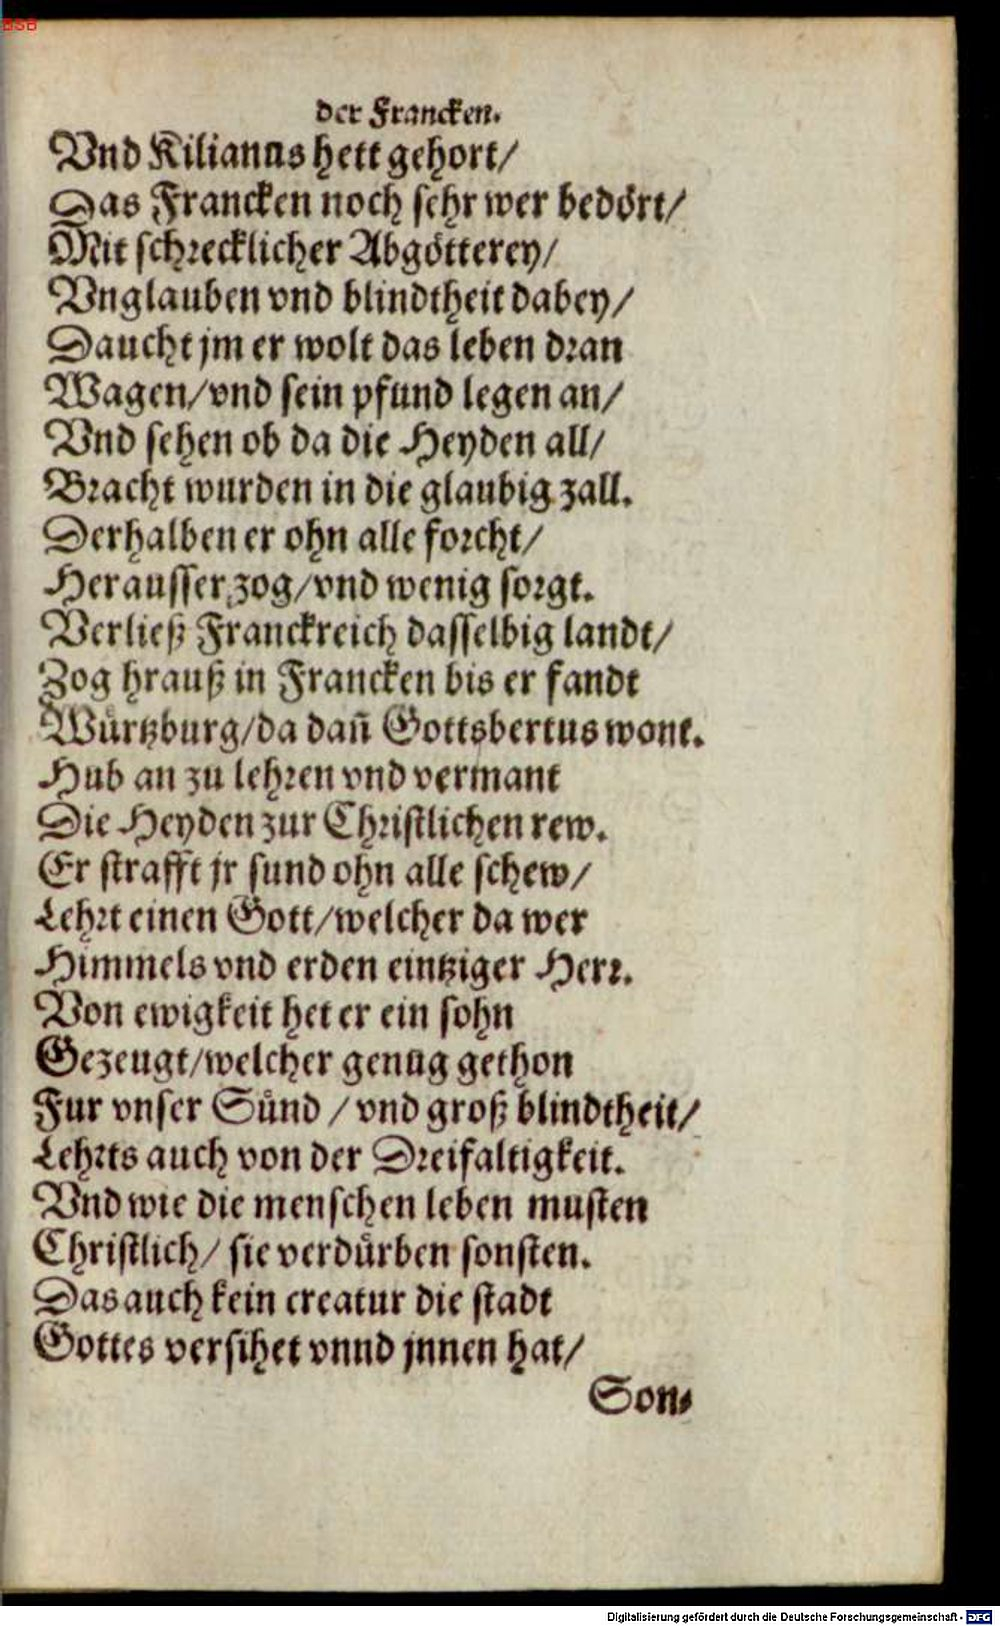 BSB
der Francken.
Vnd Kilianus hett gehort/
Das Francken noch sehr wer bedört/
Mit schrecklicher Abgötterey/
Vnglauben vnd blindtheit dabey/
Daucht jm er wolt das leben dran
Wagen/vnd sein pfund legen an/
Vnd sehen ob da die Heyden all/
Bracht wurden in die glaubig zall.
Derhalben er ohn alle forcht/
Herausser zog/vnd wenig sorgt.
Verließ Franckreich dasselbig landt/
Zog hrauß in Francken bis er fandt
Würtzburg/da dañ Gottsbertus wont.
Hub an zu lehren vnd vermant
Die Heyden zur Christlichen rew.
Er strafft jr sund ohn alle schew/
Lehrt einen Gott/welcher da wer
Himmels vnd erden eintziger Herr.
Von ewigkeit het er ein sohn
Gezeugt/welcher genug gethon
Fur vnser Sünd / vnd groß blindtheit/
Lehrts auch von der Dreifaltigkeit.
Vnd wie die menschen leben musten
Christlich/ sie verdürben sonsten.
Das auch kein creatur die stadt
Gottes versihet vnnd jnnen hat/
Son⸗
Digitalisierung gefördert durch die Deutsche Forschungsgemeinschaft - DFG